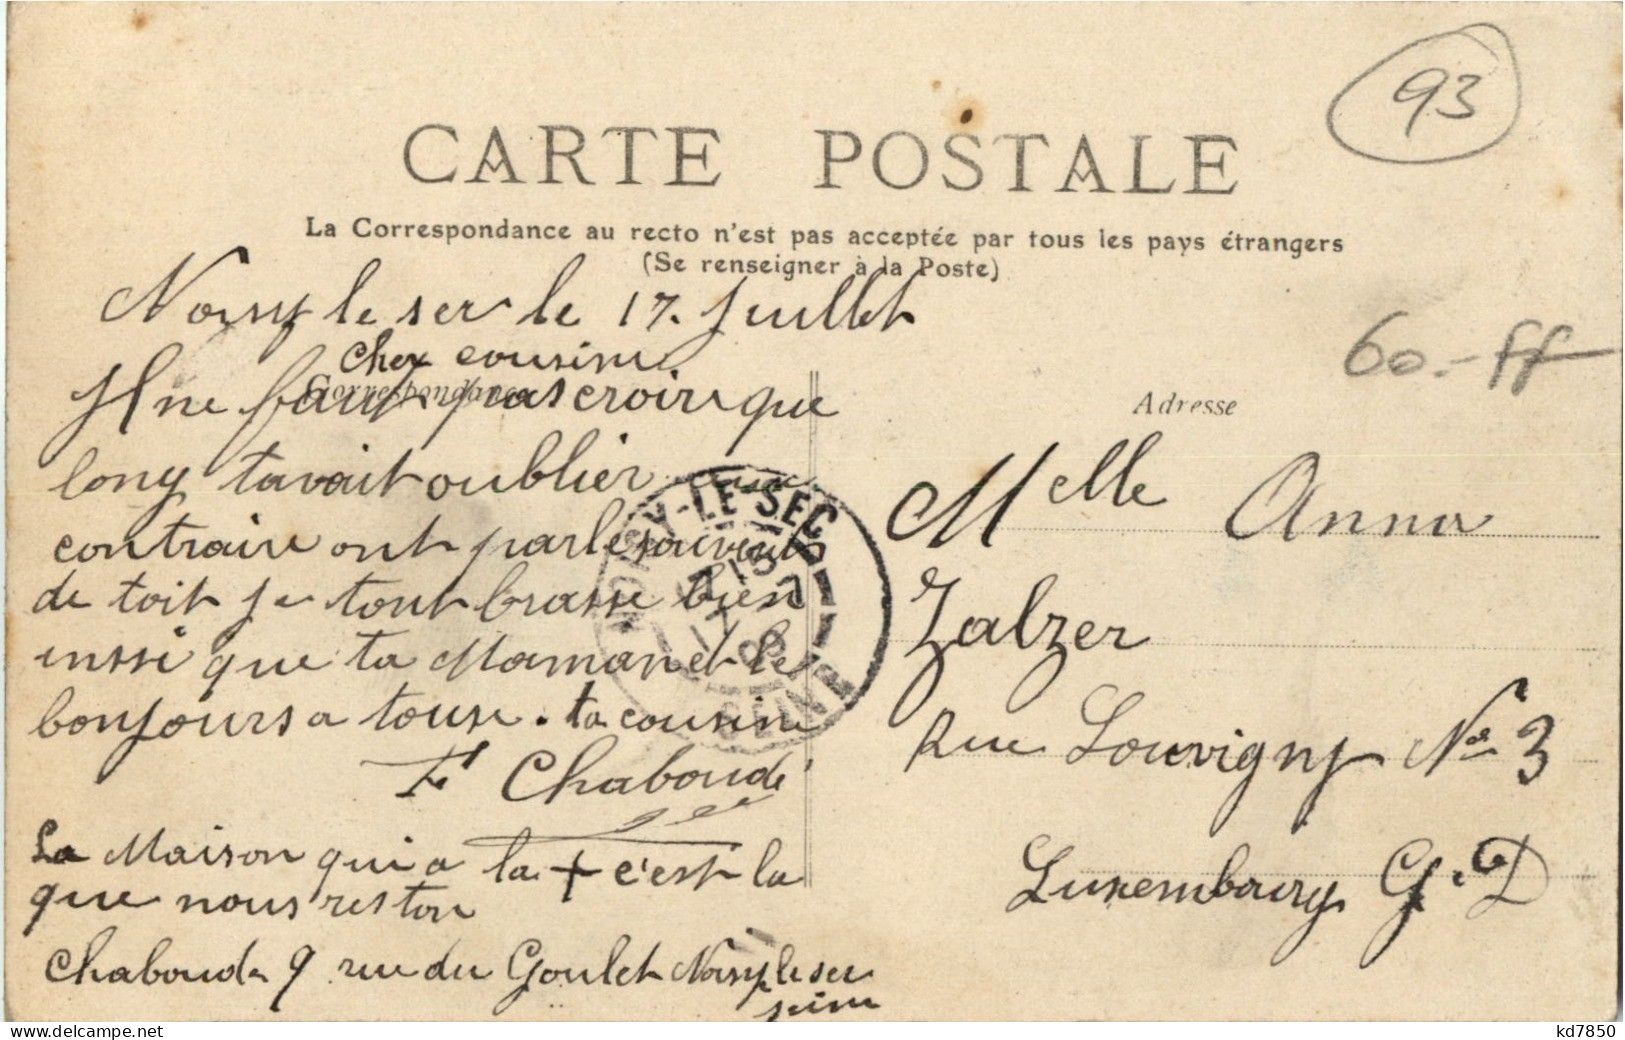 93
CARTE POSTALE
La Correspondance au recto n'est pas acceptée par tous les pays étrangers
(Se renseigner à la Poste)
Noisy le sec le 17. Juillet
60.-ff
Cher cousine
Correspondance
Adresse
Il ne faut pas croire que
long tavait oublier aux
contraire ont parle souvents
de toit je tout brasse bien
inssi que ta Maman et le
bonjours a touse. ta cousine
F Chaboude
La Maison qui a la + c'est la
que nous reston
Chaboude 9 rue du Goulet Noisy le sec
seine
Melle Anna
Zalzer
Rue Louvigny No 3
Luxembourg G. D
NOISY-LE-SEC
SEINE
kd7850